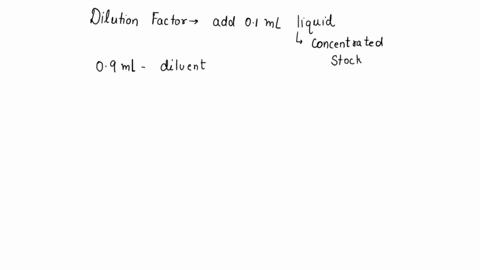 Dilution Factor→ add 0.1 mL liquid
↳ Concentrated
Stock
0.9 ml - diluent